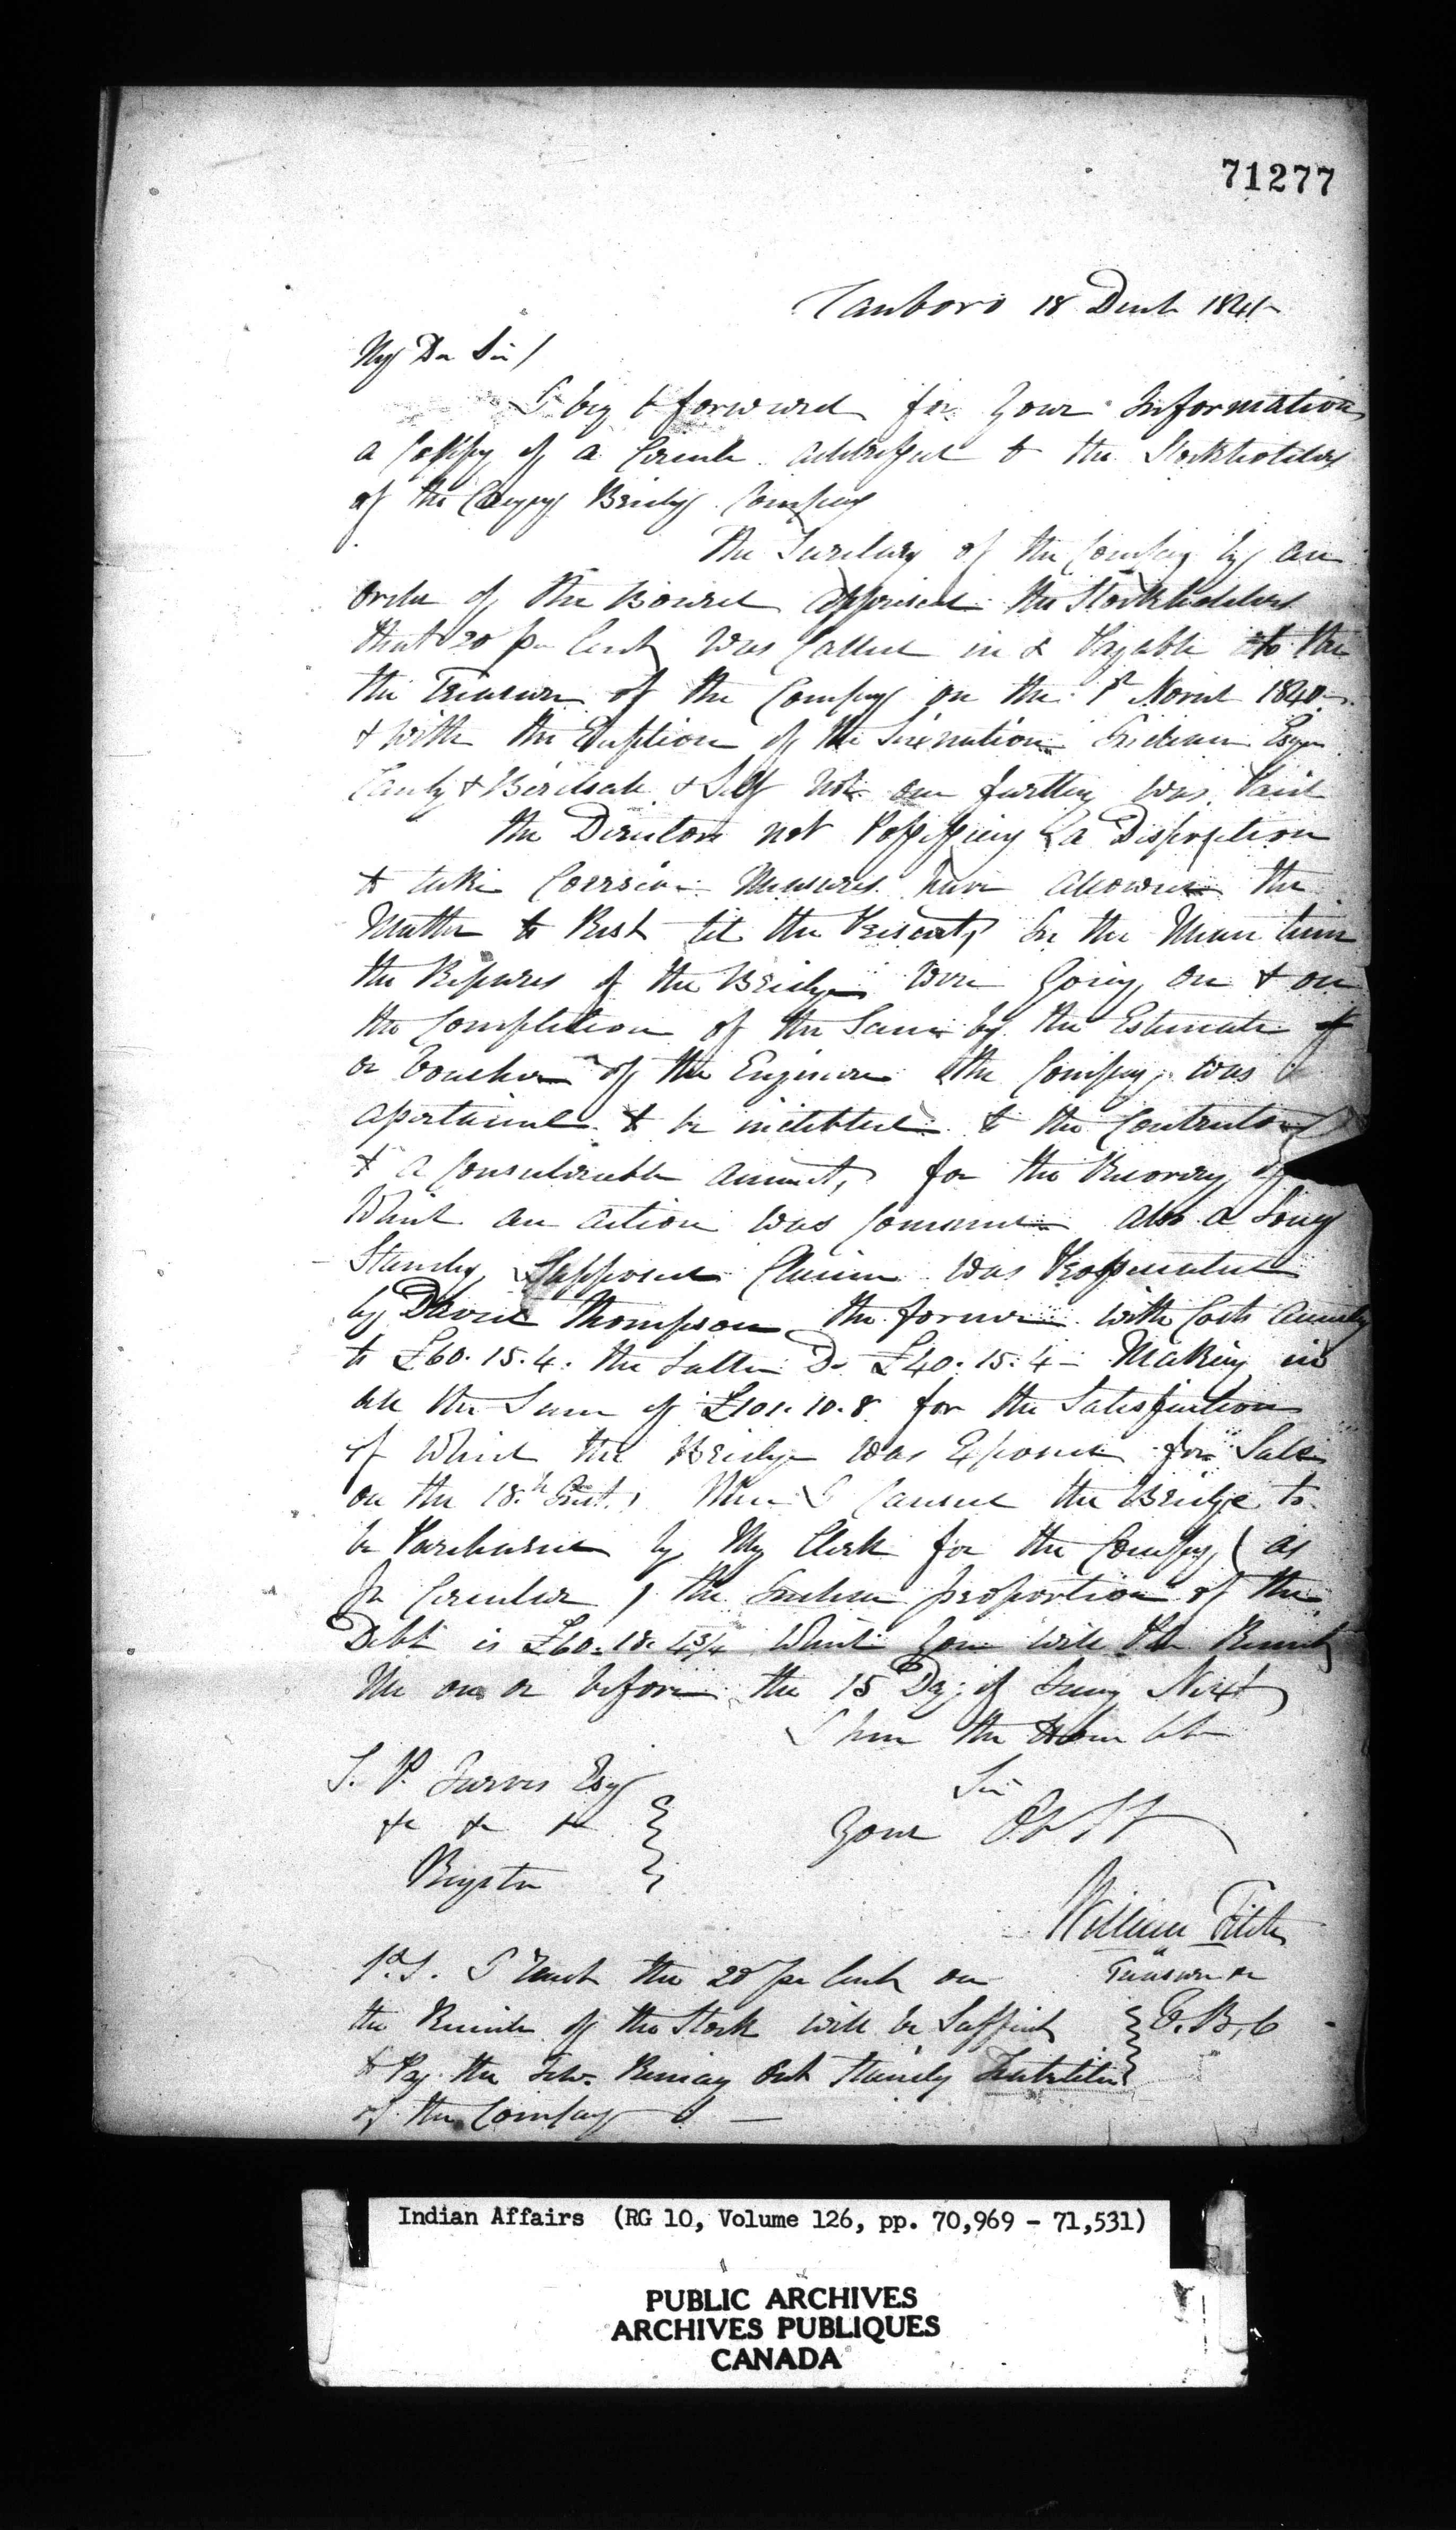 71277
Canboro 18 Decb 1841
My Dr Sir /
I beg to forward for Your Information
a Coppy of a Circule addressed to the Stockholders
of the Cayuga Bridg Company
The Secretary of the Company by an
order of the Board apprised the Stockholders
that 20 per Cent was Called in & Payable to the
the Treasurer of the Company on the 1st Novmb 1840
& with the Exeption of the Sixnation Indian Esqr
& Birdsall & Self not one farthing was Paid
the Directors not Possessing a Disposition
to take Coersive Measures have allowed the
Matter to Rest til the Present, In the Mean time
the Repares of the Bridge were Going on & on
the Completion of the Same by the Estimate of
or Voucher of the Engineer the Company was
asertained to be indebted to the Contractors
to a Considerable amount, for the Recovery of
Which an action was Commenced also a Long
Standing Supposed Claim was Prosecuted
by David Thompson the former with Costs
to £60.15.4. the Latter Do £40.15.4 - Making in
all the Sum of £101.10.8 for the Satisfaction
of Which the Bridge was Exposed for Sale
on the 18th Inst, When I Caused the Bridge to
be Purchased by My Clerk for the Company ( as
Pr Circular ) the Indian proportion of the
Debt is £60.18.4¾ Which You will Pls Remit
Me on or before the 15 Day of Next
I have the Honr to be
Sir
Your Obt St
S. P. Jarvis Esq
&c &c &c
Kingston
William Fitch
Treasurer
C.B.C
P.S. I Trust the 20 per Cent on
the of the Stock will be Suffict
to Pay the few Out Standing
of the Company
Indian Affairs (RG 10, Volume 126, pp. 70,969 - 71,531)
PUBLIC ARCHIVES
ARCHIVES PUBLIQUES
CANADA